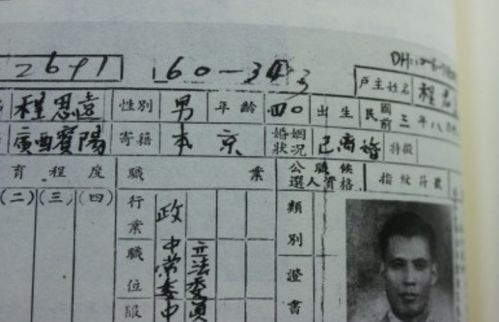 2691 160-343
戶主姓名 程思
程思遠 性別 男 年齡 四〇 出生 民國前 三年八月
廣西賓陽 寄籍 本京 婚姻狀況 已离婚 特徵
育程度 職業 公職候選人資格 指紋符號
(二)(三)(四) 行業 政 類別
職位 中常委 立法委員 證書
服 中